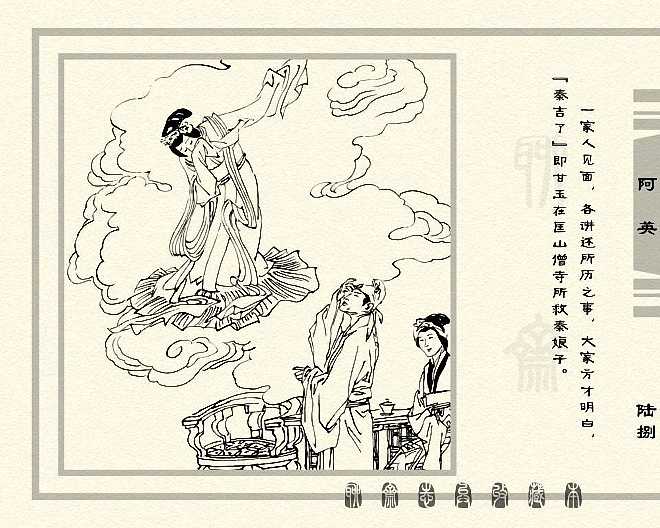 阿英
陆捌
一家人见面，各讲述所历之事，大家方才明白，
『秦吉了』即甘玉在匡山僧寺所救秦娘子。
聊斋志异收藏本